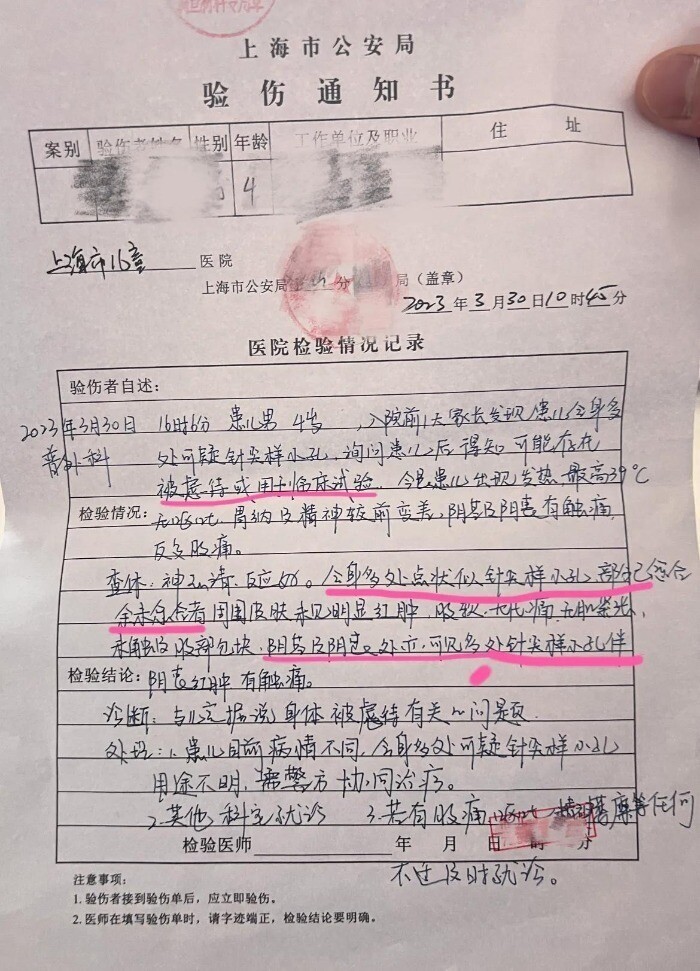 上海市公安局
验伤通知书
案别 验伤者姓名 性别 年龄 工作单位及职业 住址
4
上海市儿童 医院
上海市公安局 分局(盖章)
2023年3月30日10时45分
医院检验情况记录
验伤者自述:
2023年3月30日 16时6分 患儿男 4岁,入院前1天家长发现患儿全身多
普外科 处可疑针尖样小孔,询问患儿后得知可能存在
被虐待或用于临床试验。今晨患儿出现发热,最高39℃
检验情况: 无呕吐,胃纳及精神较前变差,阴茎及阴囊有触痛,
反复腹痛。
查体:神志清,反应好。全身多处点状似针尖样小孔,部分已愈合
余未愈合者周围皮肤未见明显红肿,腹软,无压痛,无肌紧张,
未触及腹部包块,阴茎及阴囊处亦可见多处针尖样小孔伴
检验结论: 阴囊红肿有触痛。
诊断:与 据说身体被虐待有关的问题
处理:1.患儿目前病情不同,全身多处可疑针尖样小孔
用途不明,需警方协同治疗。
2.其他科室就诊 3.若有腹痛 呕吐 精神 等任何
检验医师 年 月 日 时 分
不适及时就诊。
注意事项:
1.验伤者接到验伤单后,应立即验伤。
2.医师在填写验伤单时,请字迹端正,检验结论要明确。